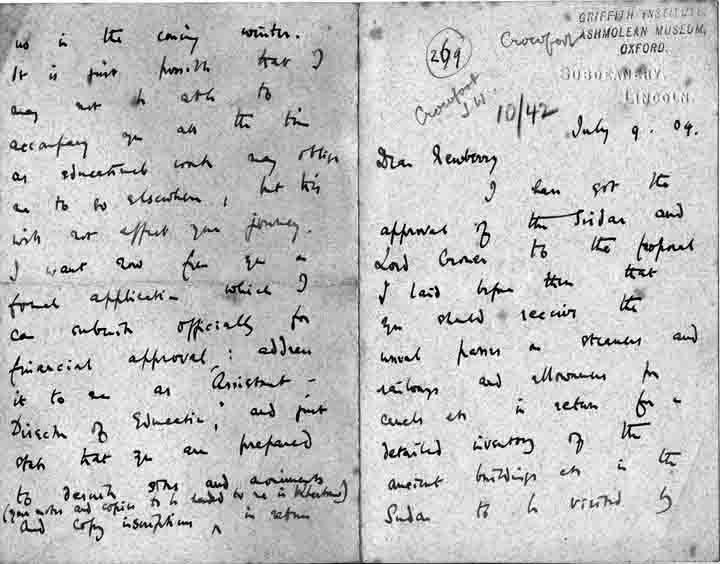 GRIFFITH INSTITUTE,
ASHMOLEAN MUSEUM,
OXFORD.
269
Crowfoot
Crowfoot
J.W.
10/42
SUBDEANERY,
LINCOLN.
July 9. 04.
Dear Newberry
I have got the
approval of the Sirdar and
Lord Cromer to the proposal
I laid before them that
you should receive the
usual passes on steamers and
railways and allowances for
camels etc in return for a
detailed inventory of the
ancient buildings etc in the
Sudan to be visited by
us in the coming winter.
It is just possible that I
may not be able to
accompany you all the time
as educational work may oblige
me to go elsewhere, but this
will not affect your journey.
I want now from you a
formal application which I
can submit officially for
financial approval; address
it to me as "Assistant-
Director of Education," and just
state that you are prepared
to describe sites and monuments
(your notes and copies to be handed to me in Khartoum)
and copy inscriptions ^ in return